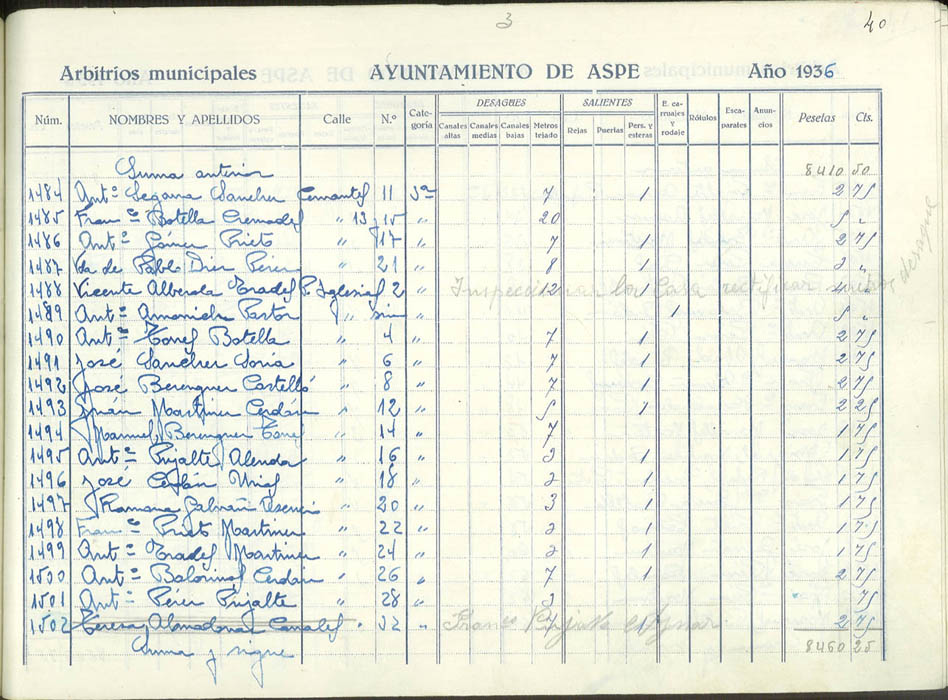 3
40
Arbitrios municipales AYUNTAMIENTO DE ASPE Año 1936
Núm. NOMBRES Y APELLIDOS Calle N.º Categoría DESAGUES SALIENTES E. carruajes y rodaje Rótulos Escaparates Anuncios Pesetas Cts.
Canales altas Canales medias Canales bajas Metros tejado Rejas Puertas Pers. y esteras
Suma anterior 8410 50
1484 Antº Segarra Sanchez Cervantes 11 3ª 7 1 2 75
1485 Franco Botella Cremades " 13 y 15 " 20 5 "
1486 Antº Gómez Prieto " 17 " 7 1 2 75
1487 Vda de Pablo Diez Pérez " 21 " 8 1 3 "
1488 Vicente Alberola Prades P. Iglesias 2 " 12 1 4 "
Inspeccionar la Casa rectificar metros desague
1489 Antº Pastor " sin " 1 5 "
1490 Antº Botella " 4 " 7 1 2 75
1491 José Sanchez Soria " 6 " 7 1 2 75
1492 José Berenguer Castelló " 8 " 7 1 2 75
1493 Juán Martinez Cerdán " 12 " 5 1 2 25
1494 Manuel Berenguer " 14 " 7 1 75
1495 Antº Pujalte Alenda " 16 " 3 1 1 75
1496 José Cerdán " 18 " 2 1 1 75
1497 Ramona " 20 " 3 1 1 75
1498 Franco Prieto Martinez " 22 " 2 1 1 75
1499 Antº Prades Martinez " 24 " 2 1 1 75
1500 Antº Cerdán " 26 " 7 1 2 75
1501 Antº Pérez Pujalte " 28 " 3 75
1502 Teresa Almodovar Canales " 32 " 7 1 2 75
Suma y sigue 8460 25